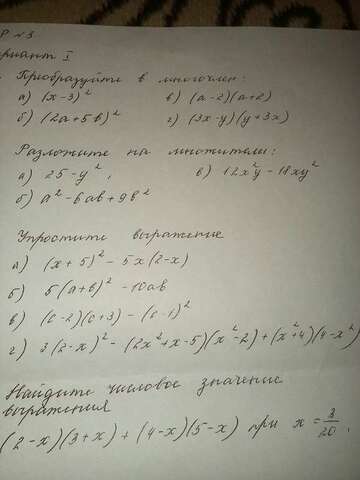 Р №3
ариант I
Преобразуйте в многочлен:
а) (x-3)² в) (a-2)(a+2)
б) (2a+5b)² г) (3x-y)(y+3x)
Разложите на множители:
а) 25-y², в) 12x²y-18xy²
б) a²-6ab+9b²
Упростите выражение
а) (x+5)²-5x(2-x)
б) 5(a+b)²-10ab
в) (c-2)(c+3)-(c-1)²
г) 3(2-x)²-(2x²+x-5)(x²-2)+(x²+4)(4-x²)
Найдите числовое значение
выражения
(2-x)(3+x)+(4-x)(5-x) при x=3/20.